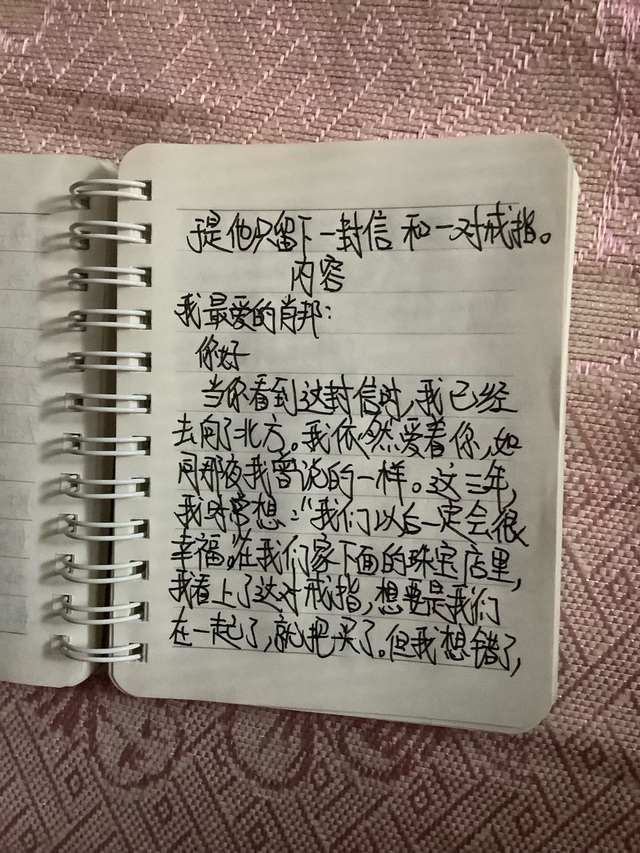 于是他只留下一封信和一对戒指。
内容
我最爱的肖邦:
你好
当你看到这封信时,我已经
去向了北方。我依然爱着你,如
同那夜我曾说的一样。这三年,
我时常想:“我们以后一定会很
幸福。”在我们家下面的珠宝店里,
我看上了这对戒指,想要是我们
在一起了,就把买了。但我想错了,